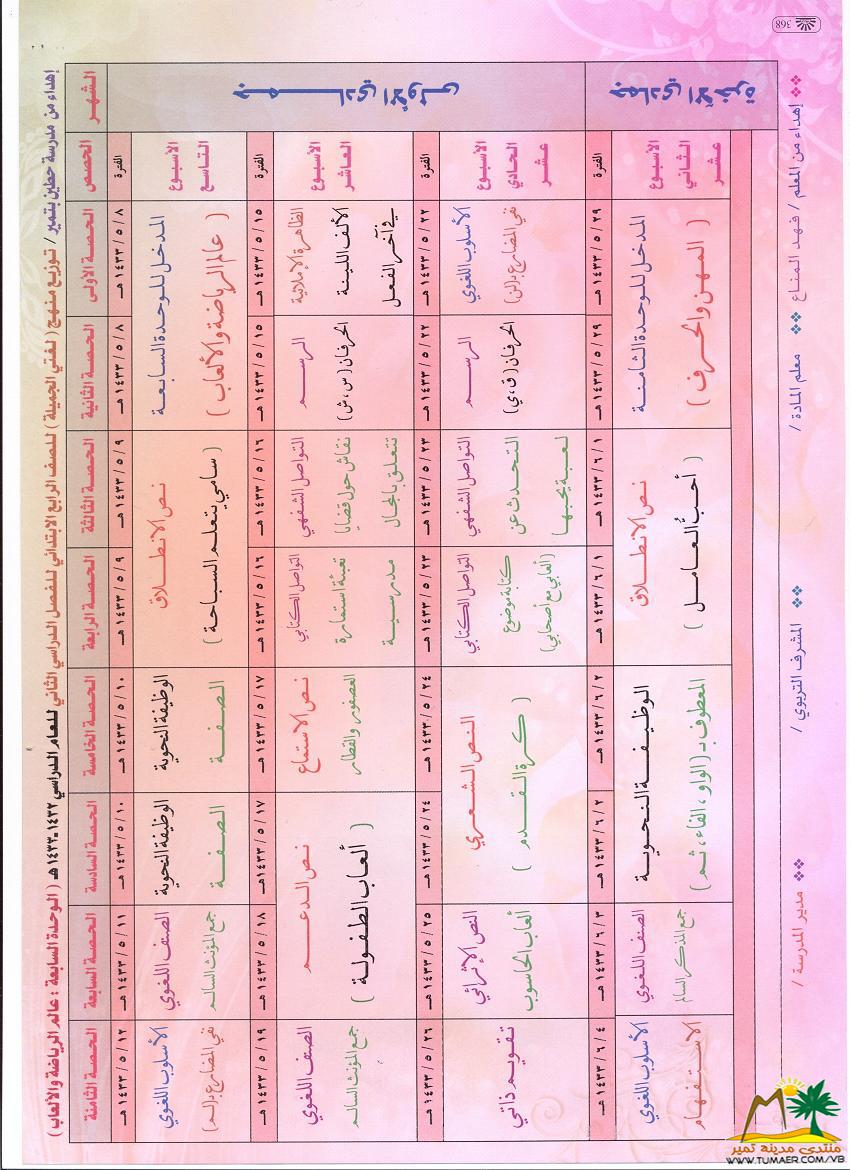 إهداء من مدرسة حطين بتمير / توزيع منهج ( لغتي الجميلة ) للصف الرابع الابتدائي للفصل الدراسي الثاني للعام الدراسي ١٤٣٢-١٤٣٣هـ ( الوحدة السابعة : عالم الرياضة والألعاب )
الشهر
جمادي الأولى
جمادي الآخرة
الحصص
الحصة الأولى
الحصة الثانية
الحصة الثالثة
الحصة الرابعة
الحصة الخامسة
الحصة السادسة
الحصة السابعة
الحصة الثامنة
الفترة
٨ / ٥ / ١٤٣٣ هـ
٨ / ٥ / ١٤٣٣ هـ
٩ / ٥ / ١٤٣٣ هـ
٩ / ٥ / ١٤٣٣ هـ
١٠ / ٥ / ١٤٣٣ هـ
١٠ / ٥ / ١٤٣٣ هـ
١١ / ٥ / ١٤٣٣ هـ
١٢ / ٥ / ١٤٣٣ هـ
الأسبوع
التاسع
المدخل للوحدة السابعة
( عالم الرياضة والألعاب )
نص الانطلاق
( سامي يتعلم السباحة )
الوظيفة النحوية
الصفة
الوظيفة النحوية
الصفة
الصنف اللغوي
جمع المؤنث السالم
الأسلوب اللغوي
نفي المضارع بـ(لم)
الفترة
١٥ / ٥ / ١٤٣٣ هـ
١٥ / ٥ / ١٤٣٣ هـ
١٦ / ٥ / ١٤٣٣ هـ
١٦ / ٥ / ١٤٣٣ هـ
١٧ / ٥ / ١٤٣٣ هـ
١٧ / ٥ / ١٤٣٣ هـ
١٨ / ٥ / ١٤٣٣ هـ
١٩ / ٥ / ١٤٣٣ هـ
الأسبوع
العاشر
الظاهرة الإملائية
الألف اللينة
في آخر الفعل
الرسم
الحرفان ( س ، ش )
التواصل الشفهي
نقاش حول قضايا
تتعلق بالمجال
التواصل الكتابي
تعبئة استمارة
مدرسية
نص الاستماع
العصفور والقطار
نص الدعم
( ألعاب الطفولة )
الصنف اللغوي
جمع المؤنث السالم
الفترة
٢٢ / ٥ / ١٤٣٣ هـ
٢٢ / ٥ / ١٤٣٣ هـ
٢٣ / ٥ / ١٤٣٣ هـ
٢٣ / ٥ / ١٤٣٣ هـ
٢٤ / ٥ / ١٤٣٣ هـ
٢٤ / ٥ / ١٤٣٣ هـ
٢٥ / ٥ / ١٤٣٣ هـ
٢٦ / ٥ / ١٤٣٣ هـ
الأسبوع
الحادي
عشر
الأسلوب اللغوي
نفي المضارع بـ(لن)
الرسم
الحرفان ( ق ، ي )
التواصل الشفهي
التحدث عن
لعبة يحبها
التواصل الكتابي
كتابة موضوع
(ألعابي مع أصحابي)
النص الشعري
( كرة القدم )
النص الإثرائي
ألعاب الحاسوب
تقويم ذاتي
الفترة
٢٩ / ٥ / ١٤٣٣ هـ
٢٩ / ٥ / ١٤٣٣ هـ
١ / ٦ / ١٤٣٣ هـ
١ / ٦ / ١٤٣٣ هـ
٢ / ٦ / ١٤٣٣ هـ
٢ / ٦ / ١٤٣٣ هـ
٣ / ٦ / ١٤٣٣ هـ
٤ / ٦ / ١٤٣٣ هـ
الأسبوع
الثاني
عشر
المدخل للوحدة الثامنة
( المهن والحرف )
نص الانطلاق
( أحبُّ العامل )
الوظيفة النحوية
المعطوف بـ (الواو ، الفاء ، ثم )
الصنف اللغوي
جمع المذكر السالم
الأسلوب اللغوي
الاستفهام
إهداء من المعلم / فهد المناع
معلم المادة /
المشرف التربوي /
مدير المدرسة /
368
منتدى مدينة تمير
WWW.TUMAER.COM/VB